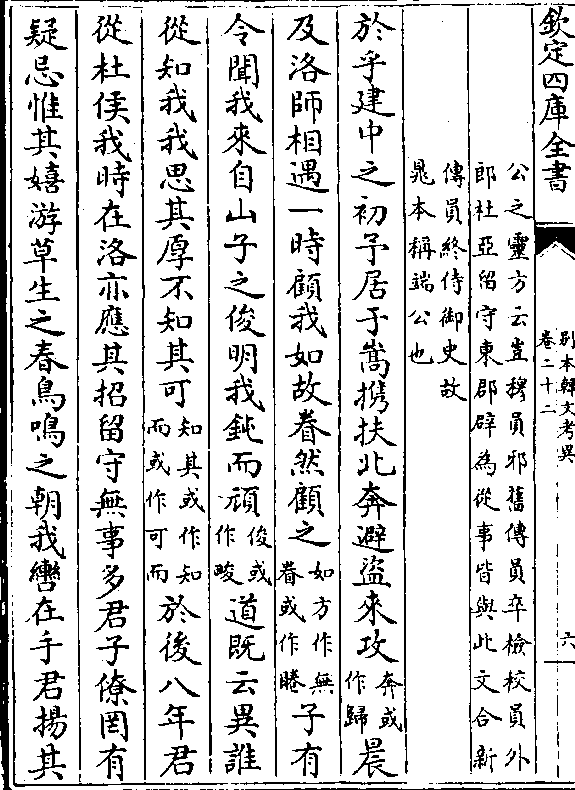 欽定四庫全書
别本韓文考異
卷二十二
六
公之靈方云豈穆員邪舊傳員卒檢校員外
郎杜亞留守東郡辟為從事皆與此文合新
傳員終侍御史故
晁本稱端公也
於乎建中之初予居于嵩携扶北奔避盜來攻奔或作歸晨
及洛師相遇一時顧我如故眷然顧之如方作無眷或作睠子有
令聞我來自山子之俊明我鈍而頑俊或作畯道既云異誰
從知我我思其厚不知其可知其或作知而或作可而於後八年君
從杜侯我時在洛亦應其招留守無事多君子僚罔有
疑忌惟其嬉游草生之春鳥鳴之朝我轡在手君揚其